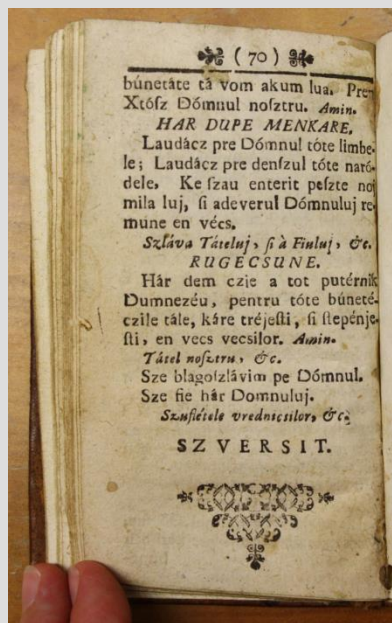 ( 70 )
búnetáte tá vom akum lua. Pren
Xtósz Dómnul nosztru. Amin.
HAR DUPE MENKARE.
Laudácz pre Dómnul tóte limbe-
le; Laudácz pre denſzul tóte naró-
dele. Ke ſzau enterit peſzte noj
mila luj, ſi adeverul Dómnuluj re-
mune en vécs.
Szláva Táteluj, ſi à Fiuluj, &c.
RUGECSUNE.
Hár dem czie a tot putérnik
Dumnezéu, pentru tóte búneté-
czile tále, káre tréjeſti, ſi ſtepénje-
ſti, en vecs vecsilor. Amin.
Tátel noſztru, &c.
Sze blagoſzlávim pe Dómnul.
Sze fie hár Domnuluj.
Szufiételе vrednicsilor, &c.
SZVERSIT.